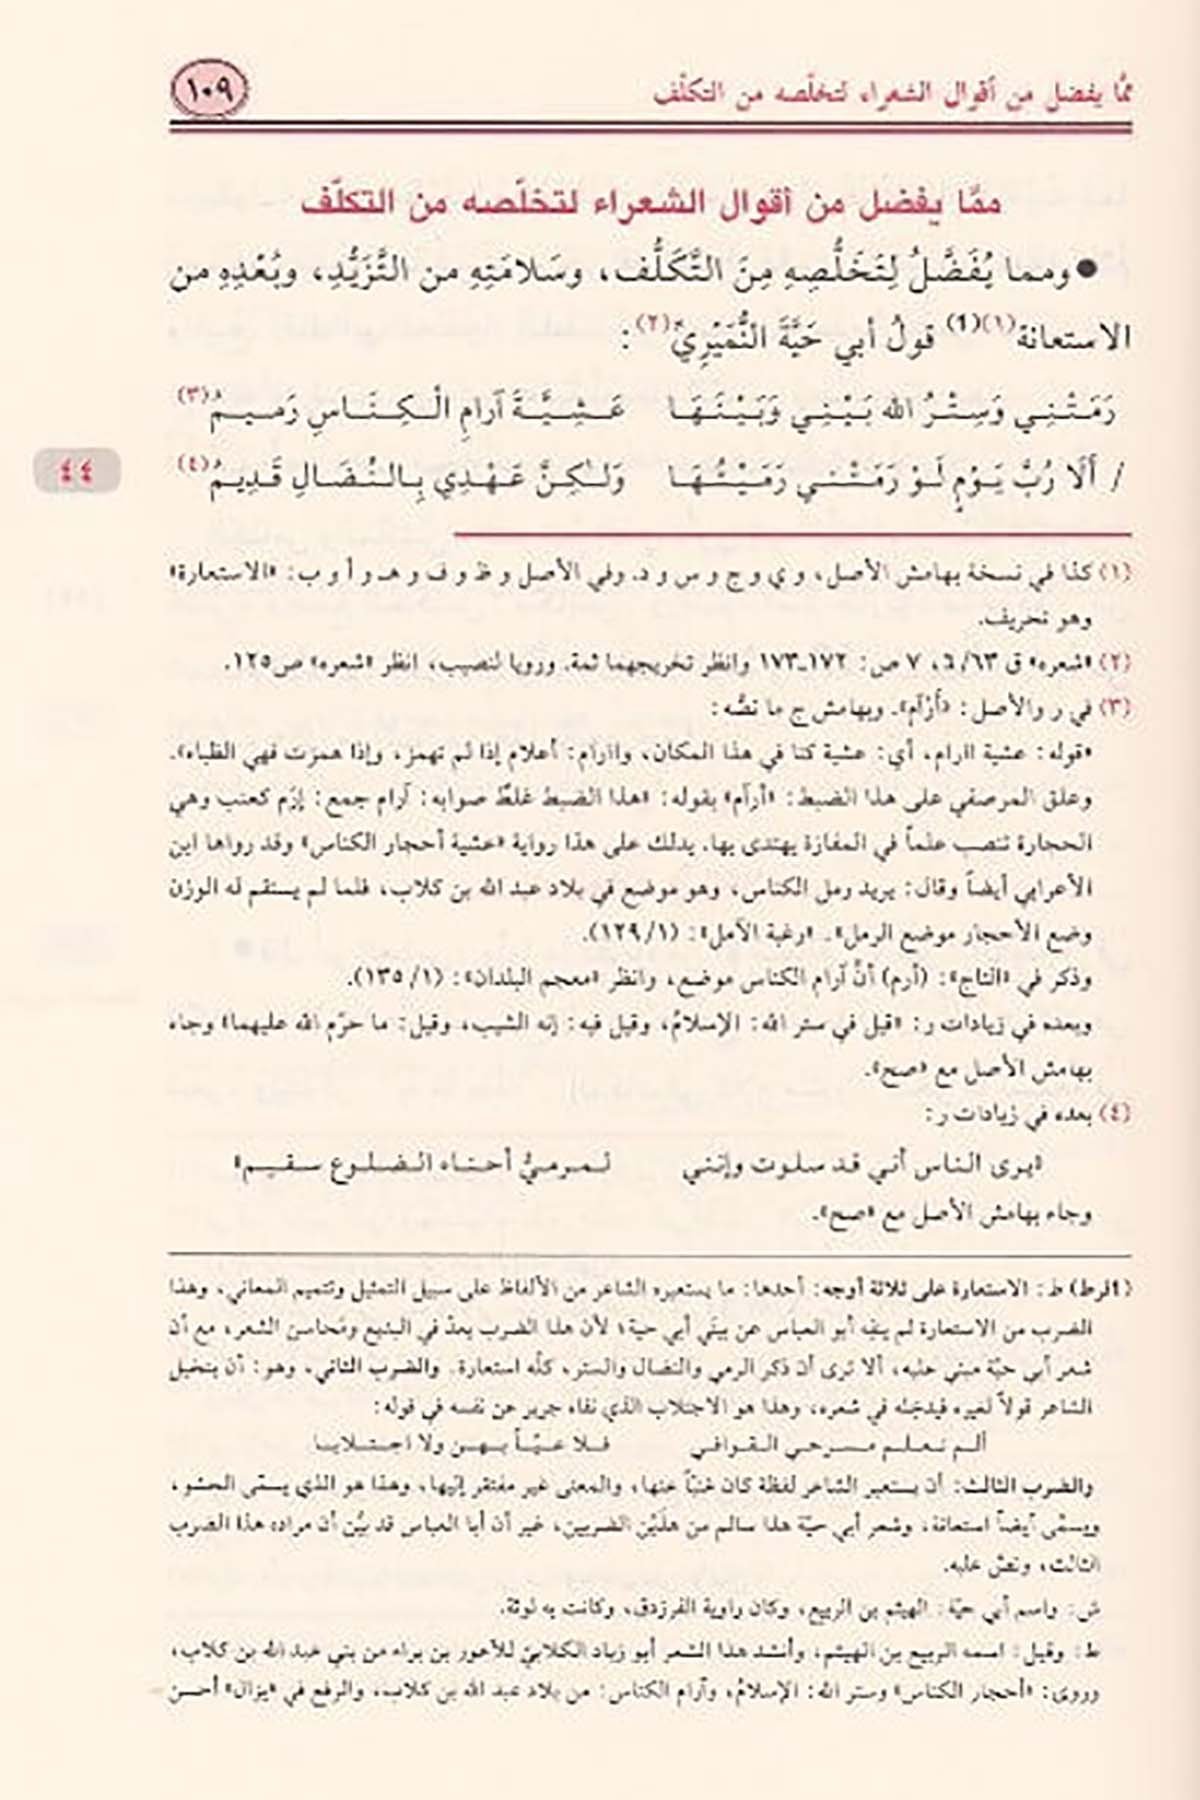 ممّا يفضل من أقوال الشعراء لتخلّصه من التكلّف
١٠٩
ممّا يفضل من أقوال الشعراء لتخلّصه من التكلّف
● ومما يُفَضَّلُ لِتَخَلُّصِهِ مِنَ التَّكَلُّف، وسَلامَتِهِ من التَّزَيُّدِ، وبُعْدِهِ من
الاستعانة(١)(٩) قولُ أبي حَيَّةَ النُّمَيْرِيِّ(٢):
رَمَتْنِي وَسِتْرُ الله بَيْنِي وَبَيْنَهَا عَشِيَّةَ آرامِ الْكِنَاسِ رَمِيمُ(٣)
/ ألَا رُبَّ يَوْمٍ لَوْ رَمَتْنِي رَمَيْتُهَا وَلٰكِنَّ عَهْدِي بِالنُّضَالِ قَدِيمُ(٤)
٤٤
(١) كذا في نسخة بهامش الأصل، و ي و ج و س و د. وفي الأصل و ظ و ف و هـ و أ و ب: «الاستعارة»
وهو تحريف.
(٢) «شعره» ق ٦٣/ ٦، ٧ ص: ١٧٢ـ١٧٣ وانظر تخريجهما ثمة. ورويا لنصيب، انظر «شعره» ص١٢٥.
(٣) في ر والأصل: «أرْآم». وبهامش ج ما نصُّه:
«قوله: عشية آارام، أي: عشية كنا في هذا المكان، وآارام: أعلام إذا لم تهمز، وإذا همزت فهي الظباء».
وعلق المرصفي على هذا الضبط: «أرآم» بقوله: «هذا الضبط غلطٌ صوابه: آرام جمع: إرَم كعنب وهي
الحجارة تنصب علماً في المفازة يهتدى بها. يدلك على هذا رواية «عشية أحجار الكناس» وقد رواها ابن
الأعرابي أيضاً وقال: يريد رمل الكناس، وهو موضع في بلاد عبد الله بن كلاب، فلما لم يستقم له الوزن
وضع الأحجار موضع الرمل». «رغبة الآمل»: (١/ ١٢٩).
وذكر في «التاج»: (أرم) أنَّ آرام الكناس موضع، وانظر «معجم البلدان»: (١/ ١٣٥).
وبعده في زيادات ر: «قيل في ستر الله: الإسلامُ، وقيل فيه: إنه الشيب، وقيل: ما حرّم الله عليهما» وجاء
بهامش الأصل مع «صح».
(٤) بعده في زيادات ر:
«يرى الناس أني قد سلوت وإنني لمرميُّ أحناء الضلوع سقيم»
وجاء بهامش الأصل مع «صح».
ط: الاستعارة على ثلاثة أوجه: أحدها: ما يستعيره الشاعر من الألفاظ على سبيل التمثيل وتتميم المعاني، وهذا
الضرب من الاستعارة لم ينفِه أبو العباس عن بيتَي أبي حية؛ لأن هذا الضرب يعدّ في البديع ومَحاسن الشعر، مع أن
شعر أبي حيّة مبني عليه، ألا ترى أن ذكر الرمي والنضال والستر، كلّه استعارة. والضرب الثاني، وهو: أن ينتحيل
الشاعر قولاً لغيره فيدخله في شعره، وهذا هو الاجتلاب الذي نفاه جرير عن نفسه في قوله:
ألم تعلم مسرحي القوافي فلا عيّاً بهن ولا اجتلابا
والضرب الثالث: أن يستعير الشاعر لفظة كان غنيّاً عنها، والمعنى غير مفتقر إليها، وهذا هو الذي يسمّى الحشو،
ويسمّى أيضاً استعانة، وشعر أبي حيّة هذا سالم من هذَين الضربين، غير أن أبا العباس قد بيَّن أن مراده هذا الضرب
الثالث، ونصَّ عليه.
ش: واسم أبي حيّة: الهيثم بن الربيع، وكان راوية الفرزدق، وكانت به لوثة.
ط: وقيل: اسمه الربيع بن الهيثم، وأنشد هذا الشعر أبو زياد الكلابيّ للأعور بن براء من بني عبد الله بن كلاب،
وروى: «أحجار الكناس» وستر الله: الإسلامُ، وآرام الكناس: من بلاد عبد الله بن كلاب، والرفع في «يزال» أحسن